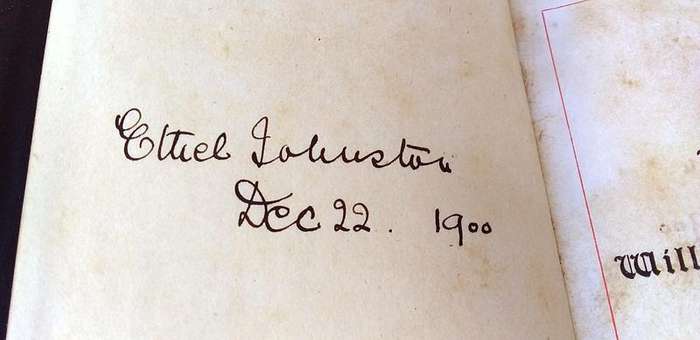 Ethel Johnston
Dec 22. 1900
Will